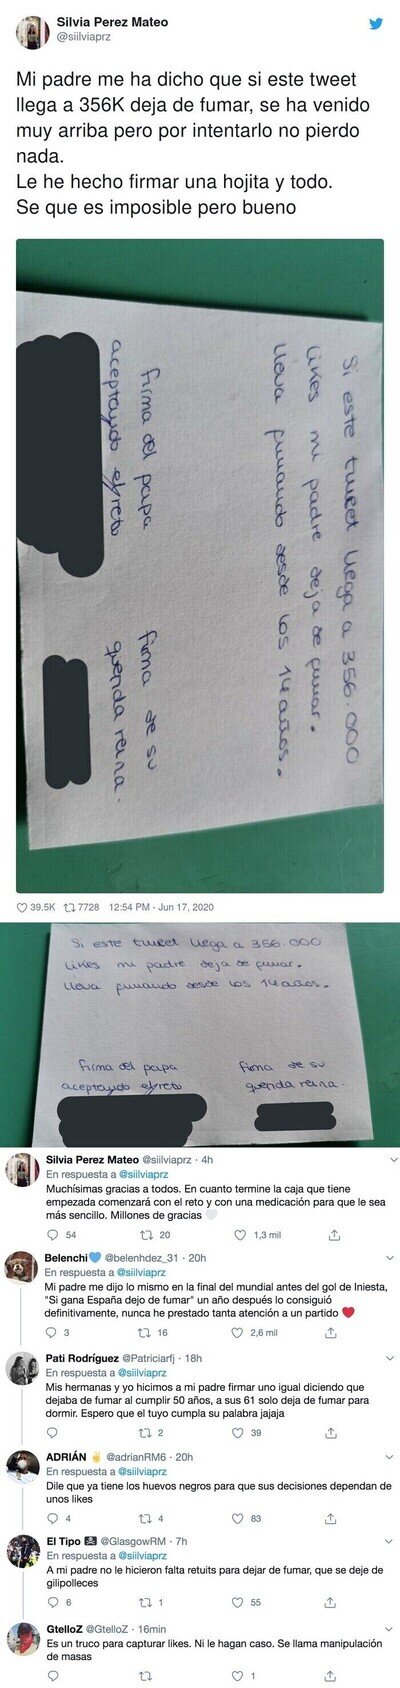 Silvia Perez Mateo
@siilviaprz
Mi padre me ha dicho que si este tweet
llega a 356K deja de fumar, se ha venido
muy arriba pero por intentarlo no pierdo
nada.
Le he hecho firmar una hojita y todo.
Se que es imposible pero bueno
Si este tweet llega a 356.000
likes mi padre deja de fumar.
lleva fumando desde los 14 años.
firma del papa
aceptando el reto
firma de su
querida reina.
39.5K 7728 12:54 PM - Jun 17, 2020
Si este tweet llega a 356.000
likes mi padre deja de fumar.
lleva fumando desde los 14 años.
firma del papa
aceptando el reto
firma de su
querida reina.
Silvia Perez Mateo @siilviaprz · 4h
En respuesta a @siilviaprz
Muchísimas gracias a todos. En cuanto termine la caja que tiene
empezada comenzará con el reto y con una medicación para que le sea
más sencillo. Millones de gracias
54 20 1,3 mil
Belenchi @belenhdez_31 · 20h
En respuesta a @siilviaprz
Mi padre me dijo lo mismo en la final del mundial antes del gol de Iniesta,
"Si gana España dejo de fumar" un año después lo consiguió
definitivamente, nunca he prestado tanta atención a un partido
3 16 2,6 mil
Pati Rodríguez @Patriciarfj · 18h
En respuesta a @siilviaprz
Mis hermanas y yo hicimos a mi padre firmar uno igual diciendo que
dejaba de fumar al cumplir 50 años, a sus 61 solo deja de fumar para
dormir. Espero que el tuyo cumpla su palabra jajaja
2 39
ADRIÁN @adrianRM6 · 20h
En respuesta a @siilviaprz
Dile que ya tiene los huevos negros para que sus decisiones dependan de
unos likes
4 4 83
El Tipo @GlasgowRM · 7h
En respuesta a @siilviaprz
A mi padre no le hicieron falta retuits para dejar de fumar, que se deje de
gilipolleces
6 1 55
GtelloZ @GtelloZ · 16min
Es un truco para capturar likes. Ni le hagan caso. Se llama manipulación
de masas
1